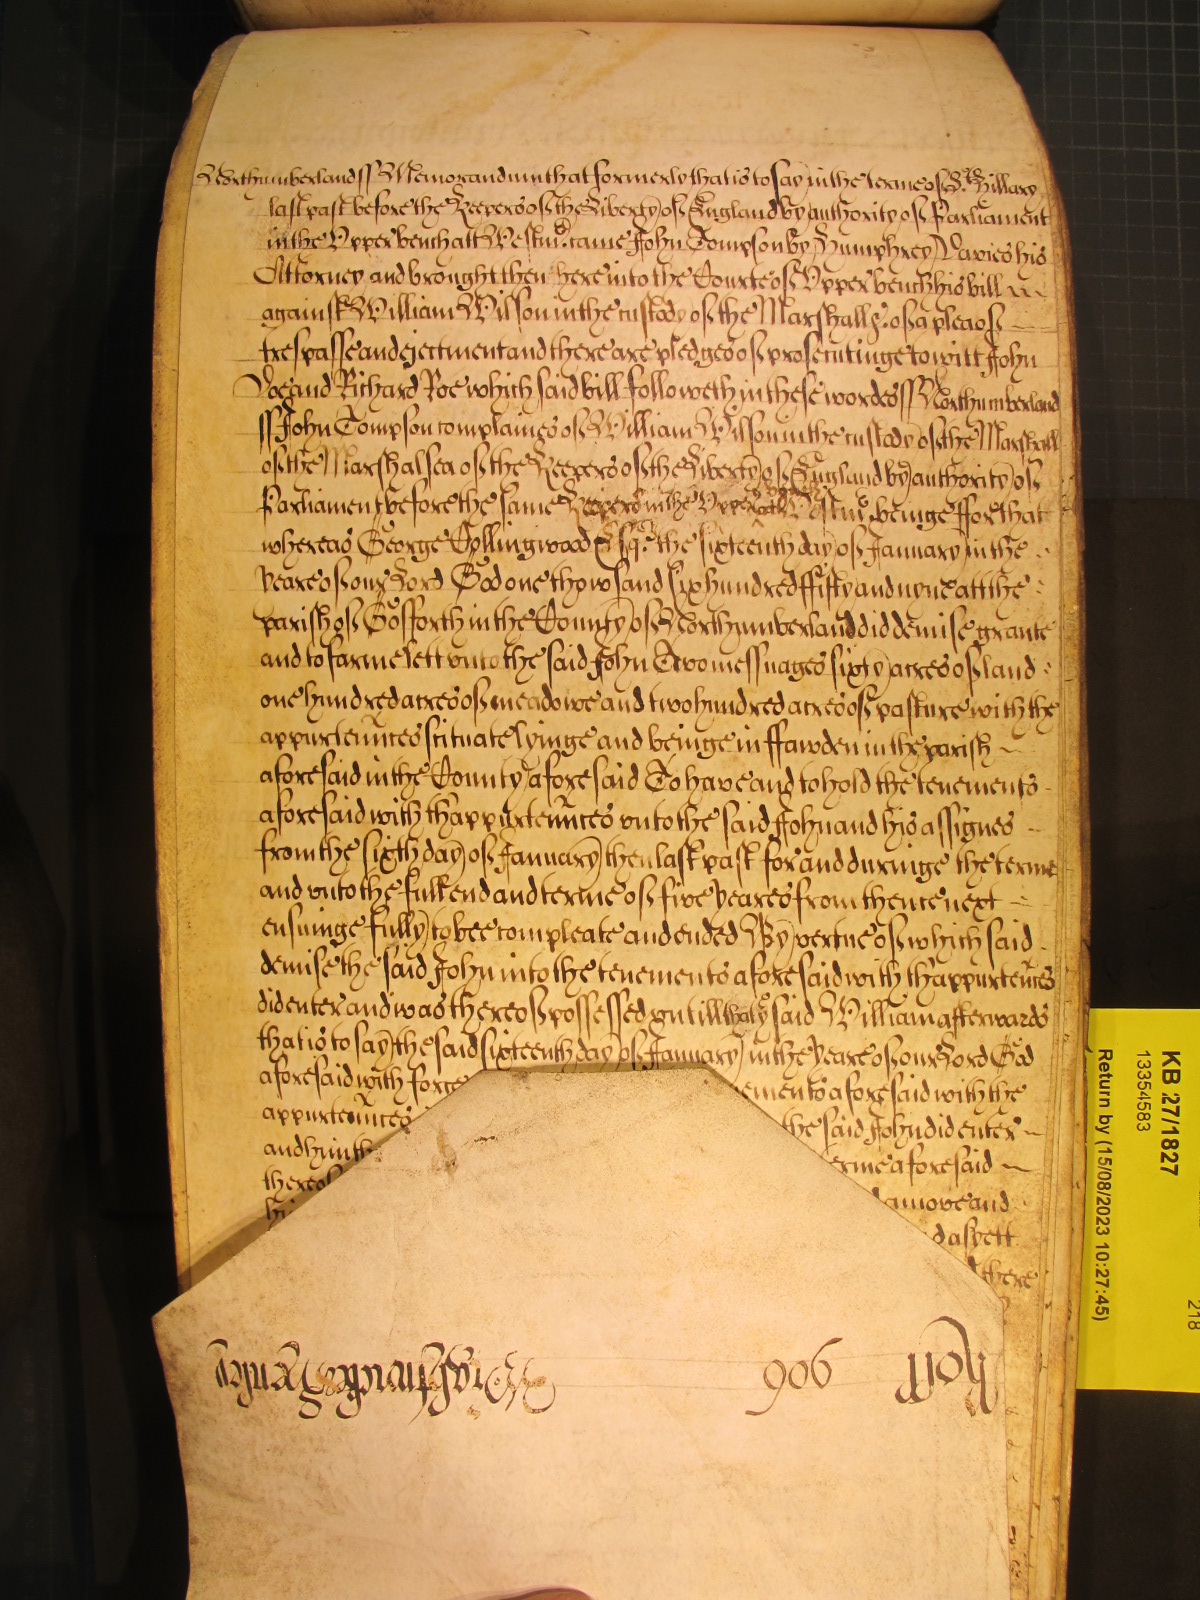 Northumberland ss Memorandum that formerly that is to say in the terme of St. Hillary
last past before the Keepers of the Liberty of England by authority of Parliament
in the Upper bench att Westmr. came John Tompson by Humphrey Davies his
Attorney and brought then here into the Courte of Upper bench his bill
against William Wilson in the custody of the Marshall &c. of a plea of
trespasse and ejectment and there are pledges of prosecutinge to witt John
Doe and Richard Roe which said bill followeth in these wordes ss Northumberland
ss John Tompson complaines of William Wilson in the custody of the Marshall
of the Marshalsea of the Keepers of the Liberty of England by authority of
Parliament before the same Keepers in the Upper Westmr. beinge ffor that
whereas George Collingwood Esqr. the sixteenth day of January in the
yeare of our Lord God one thowsand six hundred fifty and nyne att the
parish of Gosforth in the County of Northumberland did demise grante
and to farme lett unto the said John Two messuages sixty acres of land
one hundred acres of meadowe and two hundred acres of pasture with the
appurtennces scituate lyinge and beinge in ffawden in the parish
aforesaid in the County aforesaid To have and to hold the tenements
aforesaid with thappurtennces unto the said John and his assignes
from the sixth day of January then last past for and duringe the terme
and unto the full end and terme of five yeares from thence next
ensuinge fully to bee compleate and ended By vertue of which said
demise the said John into the tenements aforesaid with thappurtennces
did enter and was thereof possessed untill the said William afterwards
that is to say the said sixteenth day of January in the yeare of our Lord God
aforesaid with force ements aforesaid with the
appurtennces the said John did enter
and him terme aforesaid
thereof amove and
hi d as yett
there
Roll 906
KB 27/1827
13354583
Return by (15/08/2023 10:27:45)
218